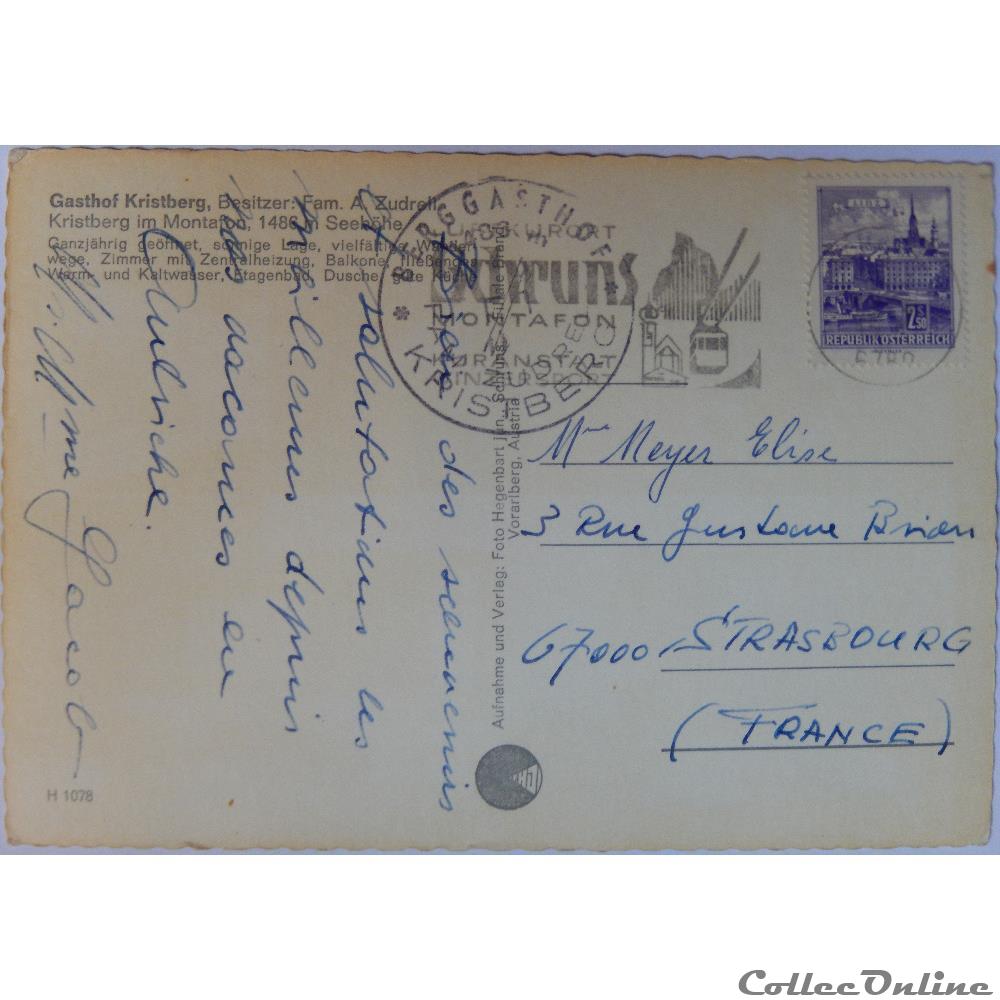 Gasthof Kristberg, Besitzer: Fam. A. Zudrell,
Kristberg im Montafon, 1486 m Seehöhe
Ganzjährig geöffnet, sonnige Lage, vielfältige Wander-
wege, Zimmer mit Zentralheizung, Balkone, fließendes
Warm- und Kaltwasser, Etagenbad, Dusche, gute Küche
des souvenirs
et salutations les
meilleurs depuis
nos vacances en
Autriche.
Mme Jacob
H 1078
Aufnahme und Verlag: Foto Hegenbart jun., Schruns, Filiale Brand,
Vorarlberg, Austria
BERGGASTHOF
KRISTBERG
LUFTKURORT
SCHRUNS
MONTAFON
KURANSTALT
WINTERSPORT
6780
LINZ
2.50
REPUBLIK ÖSTERREICH
Mme Meyer Elise
3 Rue Gustave Brion
67000 STRASBOURG
(FRANCE)
CollecOnline